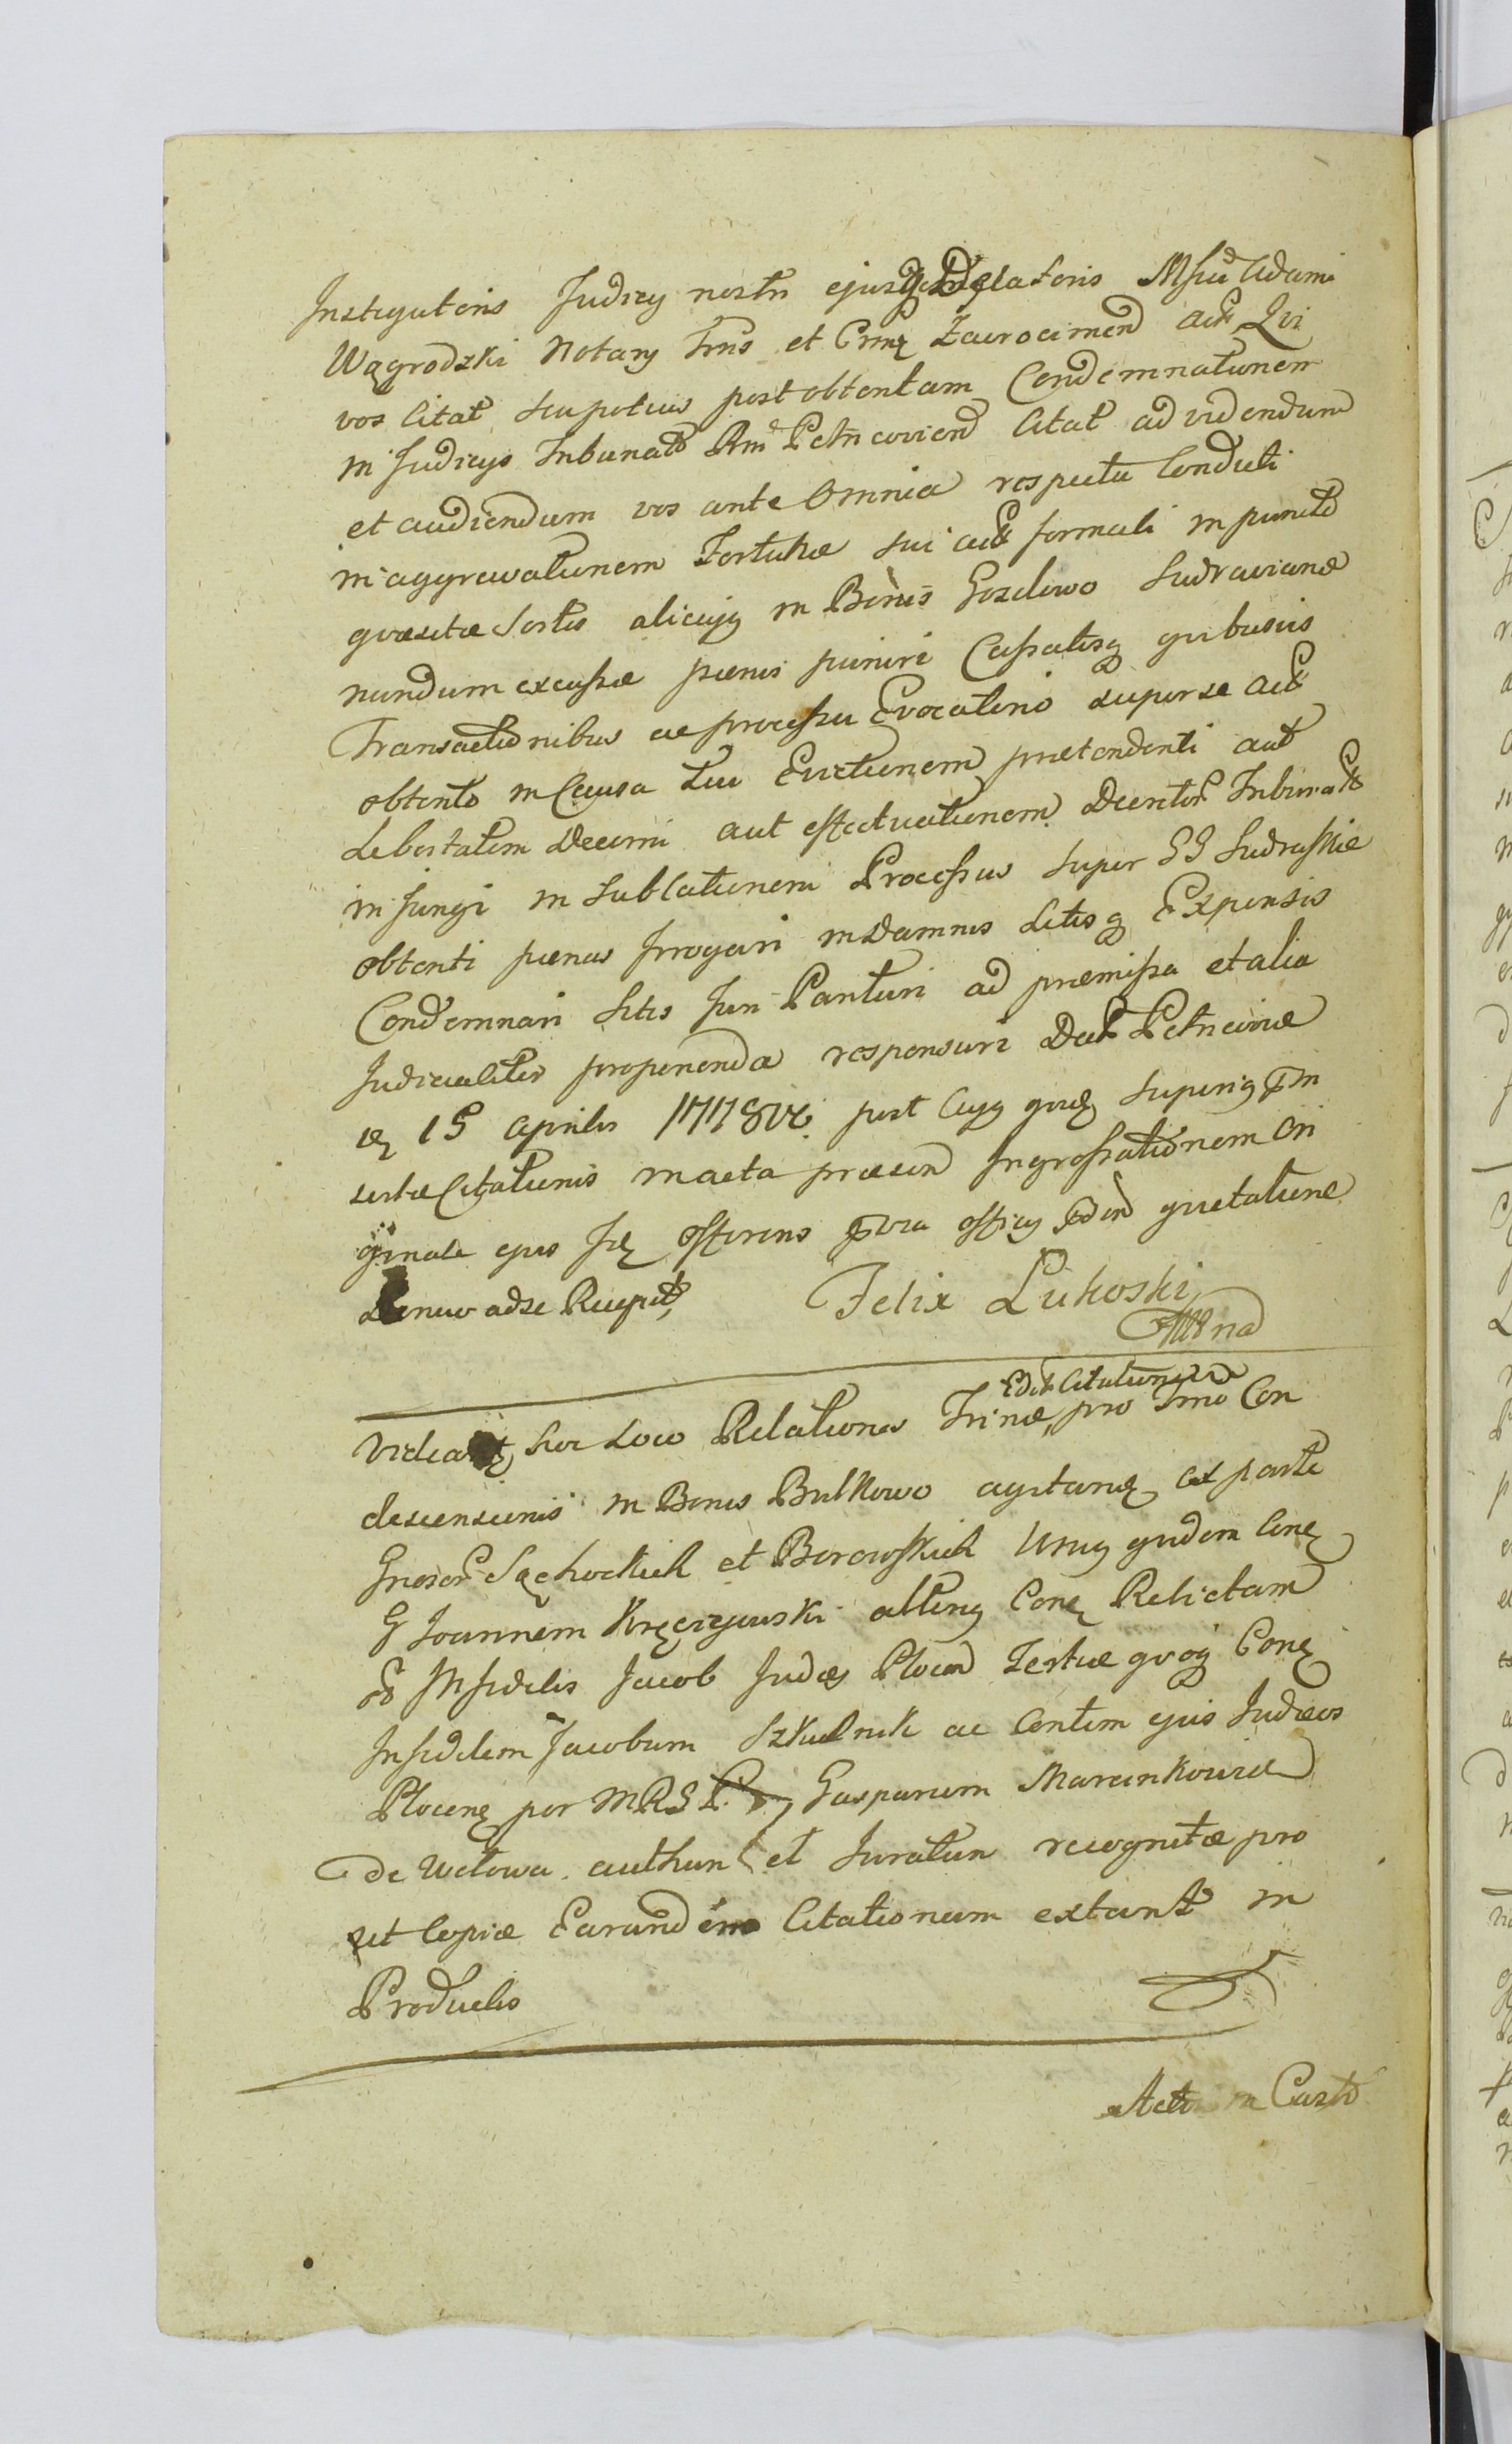 Instigatoris Judicy nostri ejusq Delatoris Mfici Adami
Wągrodzki Notary Trris et Crmę Zavrocimen Act Qvi
vos Citat seu potius post obtentam Condemnationem
in Judicys Tribunal Rni Petricovien Citat ad videndum
et audiendum vos ante Omnia respectu Conduti
in aggravationem Fortunae sui act formali in puncto
qvaesitae Sortis alicujq in Bonis Gozdowo Sudraviano
nundum excussae paenis puniri Cassatisq qvibusvis
Transactionibus ac processu Evocatorio super se act
obtento in Causa sua Evictionem praetendenti aut
Libertatem Decerni aut effectuationem Decretor Tribunal
injungi in Sublationem Processus super GG Sudraskie
obtenti paenas Irrogari in damnis Litisq Expensis
Condemnari Sitis Juri Parituri ad praemissa et alia
Judicialiter proponenda responsuri Dat Petricoviae
die 15 Aprilis 1778vo post Cujq qvidę superiq in
sertae Citationis in acta praesen Ingrossationem Ori
ginale ejus Idę Offerens pura officy pden qvietatione
Denuo ad se Recepit,
Felix Lukoski
Videantę hoc Loco Relationes Trinae pro Trno Con
Edit Citationũ
descensionis in Bonis Bulkowo agitanę ex parte
Gnosor Sąchockich et Borowskich Unuq qvidem Conę
G Joannem Kręciejewski alteriq Conę Relictam
Infidelis Jacob Judęi Plocen Tertiae qvoq Conę
Infidelem Jacobum Szkudnik ac Centum ejus Judaeos
Plocenę per MRSR Gasparum Marcinkowicz
de Uctowa authen et Juratum recognitae pro
ut Copiae Earundem Citationum extant in
Productis
Actum in Castro